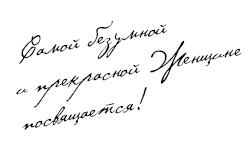 Самой безумной
и прекрасной Женщине
посвящается!